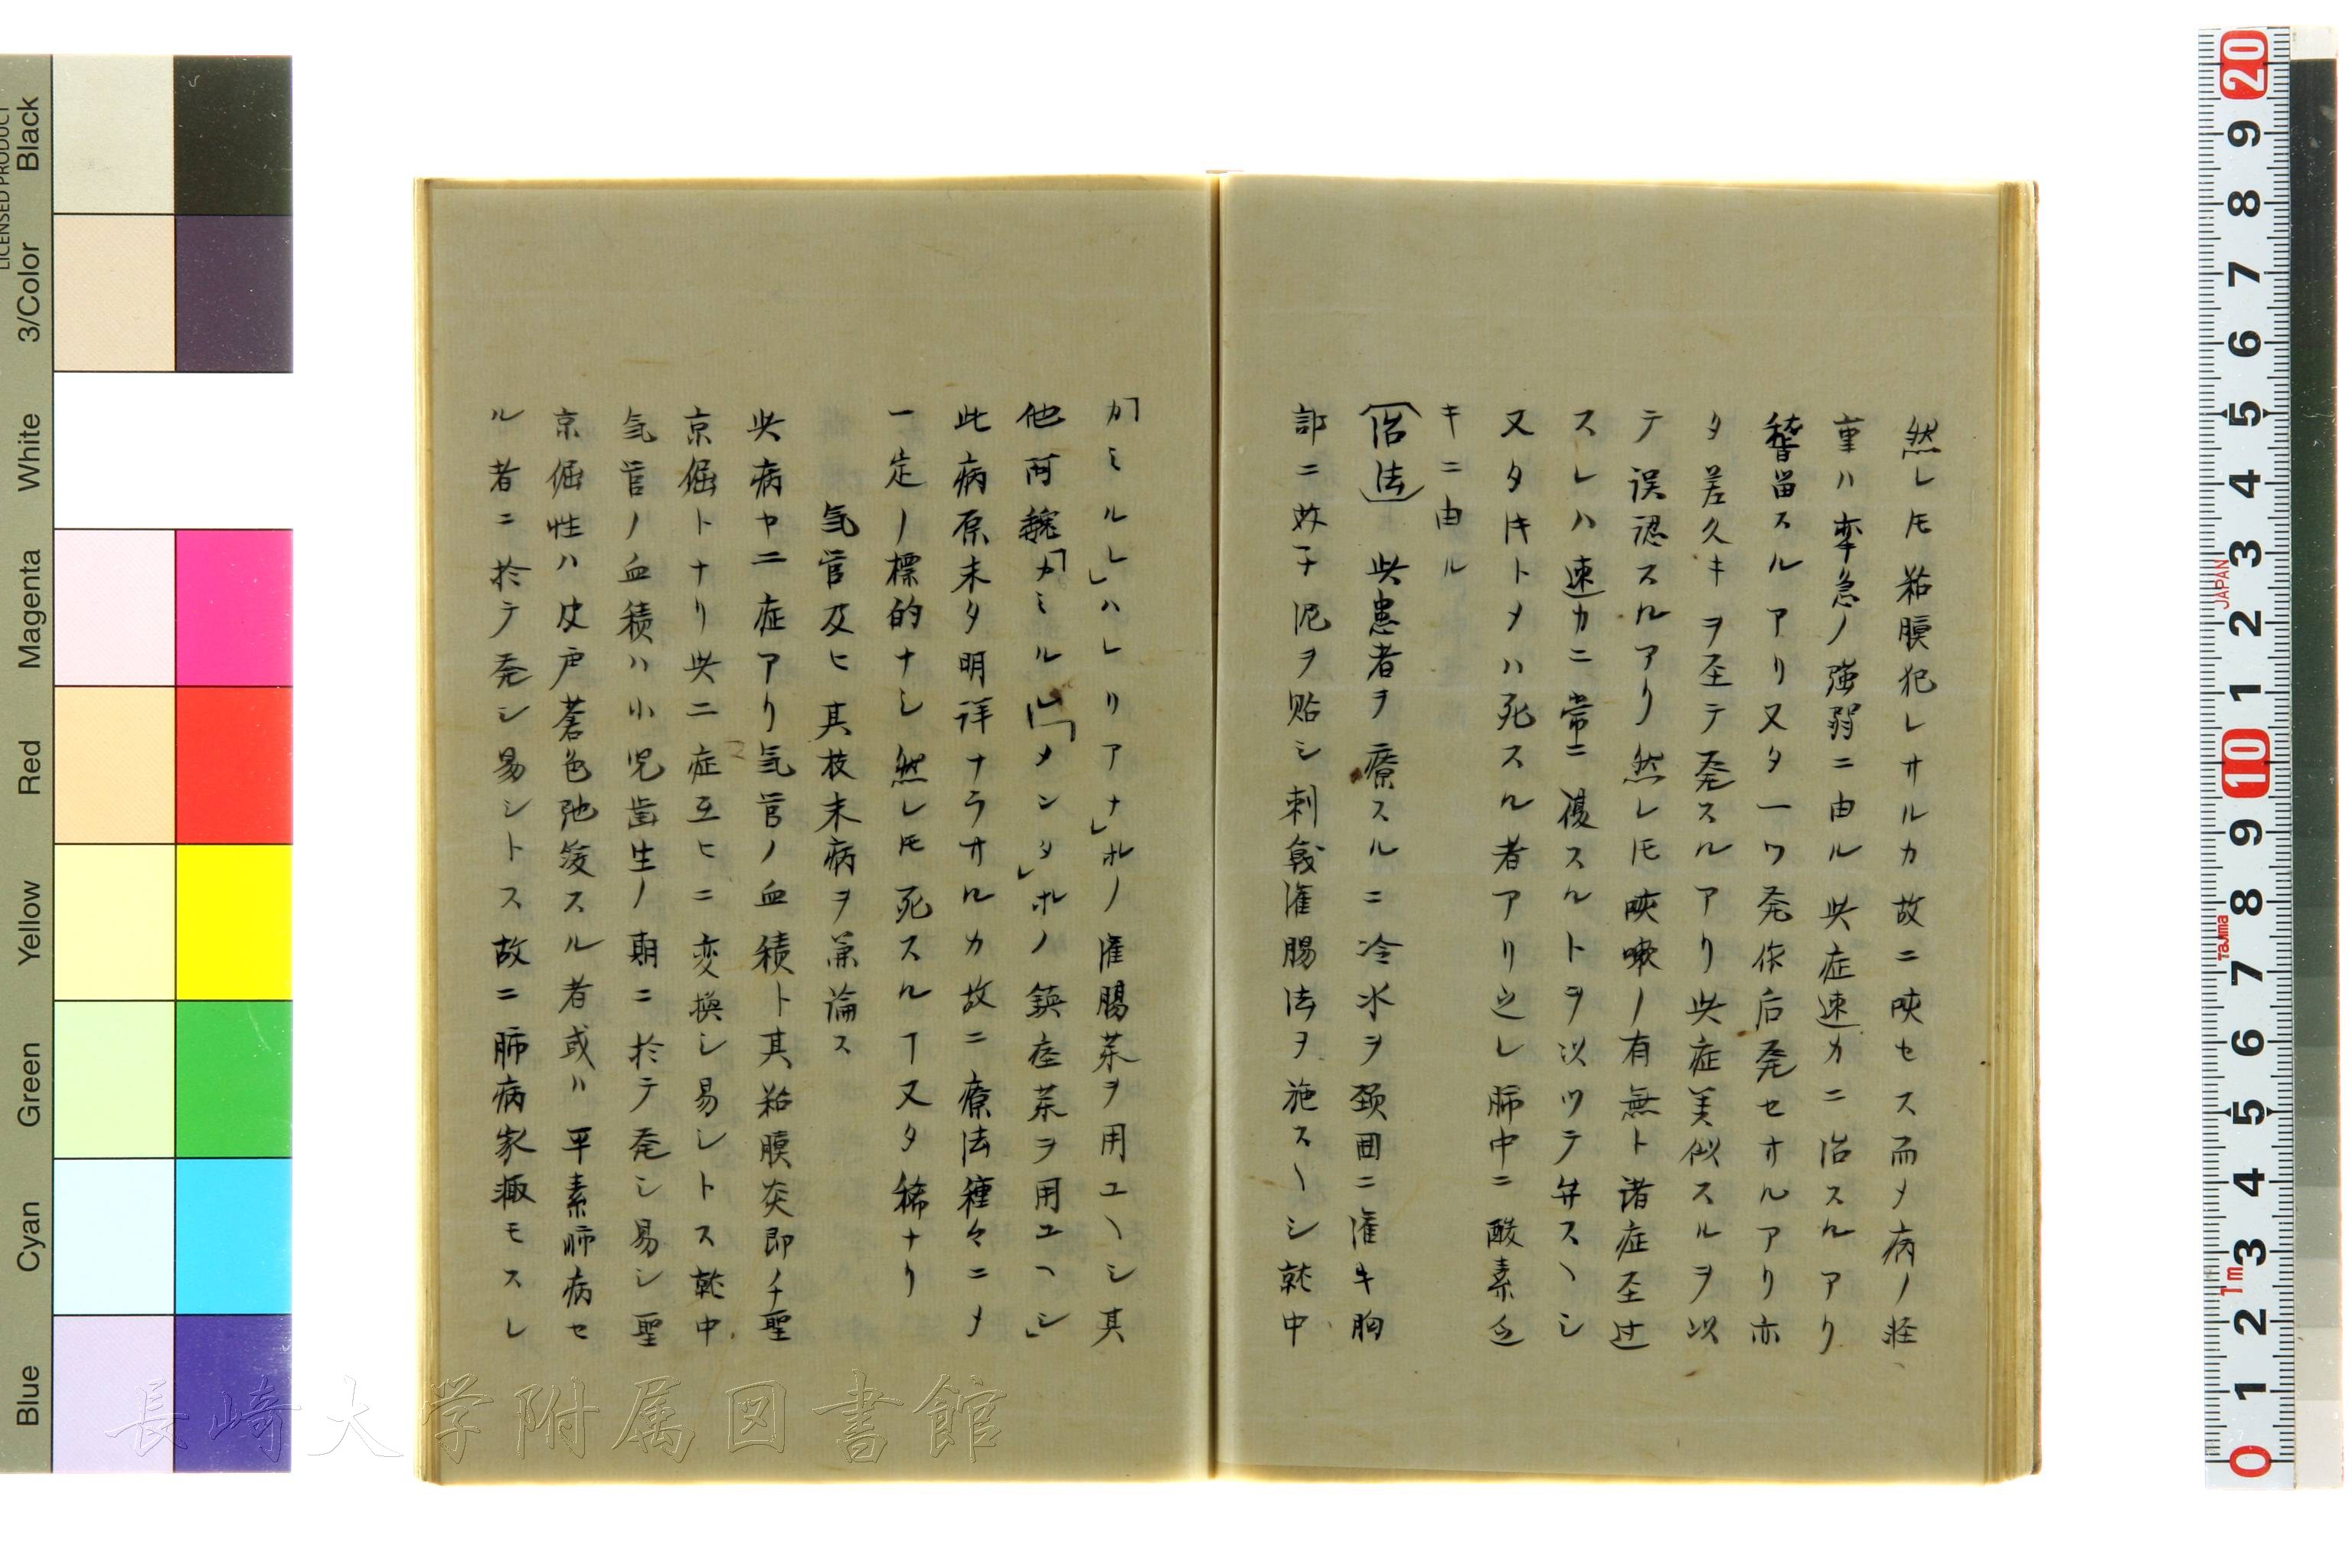 然レ𪜈粘膜犯レサルカ故ニ咳セス而メ病ノ経
重ハ牽急ノ強弱ニ由ル此症速カニ治スルアリ
稽留スルアリ又タ一ワ発作后発セサルアリ亦
タ差久キヲ至テ発スルアリ此症美似スルヲ以
テ誤認スルアリ然レ𪜈咳嗽ノ有無ト諸症至过
スレハ速カニ常ニ復スルトヲ以ツテ弁スヘシ
又タ𪜈トメハ死スル者アリ之レ肺中ニ酸素乏
キニ由ル
治法 此患者ヲ療スルニ冷水ヲ頚囲ニ潅キ胸
部ニ芥子泥ヲ貼シ刺戟潅腸法ヲ施スヘシ就中
「カミルレ」ハレリアナ」水ノ潅腸薬ヲ用ユヘシ其
他阿魏「カミルレ」「メンタ」水ノ鎮痙薬ヲ用ユヘシ」
此病原未タ明詳ナラサルカ故ニ療法種々ニメ
一定ノ標的ナシ然レ𪜈死スルヿ又タ稀ナリ
気管及ヒ其枝末病ヲ兼論ス
此病ヤ二症アリ気管ノ血積ト其粘膜炎即チ聖
京倔トナリ此二症互ヒニ変換シ易シトス就中
気管ノ血積ハ小児歯生ノ期ニ於テ発シ易シ聖
京倔性ハ皮戸蒼色弛緩スル者或ハ平素肺病セ
ル者ニ於テ発シ易シトス故ニ肺病家輙モスレ
長崎大学附属図書館
LICENSED PRODUCT
Black
3/Color
White
Magenta
Red
Yellow
Green
Cyan
Blue
20 9 8 7 6 5 4 3 2 1 10 9 8 7 6 5 4 3 2 1 0
JAPAN
Tajima
1m